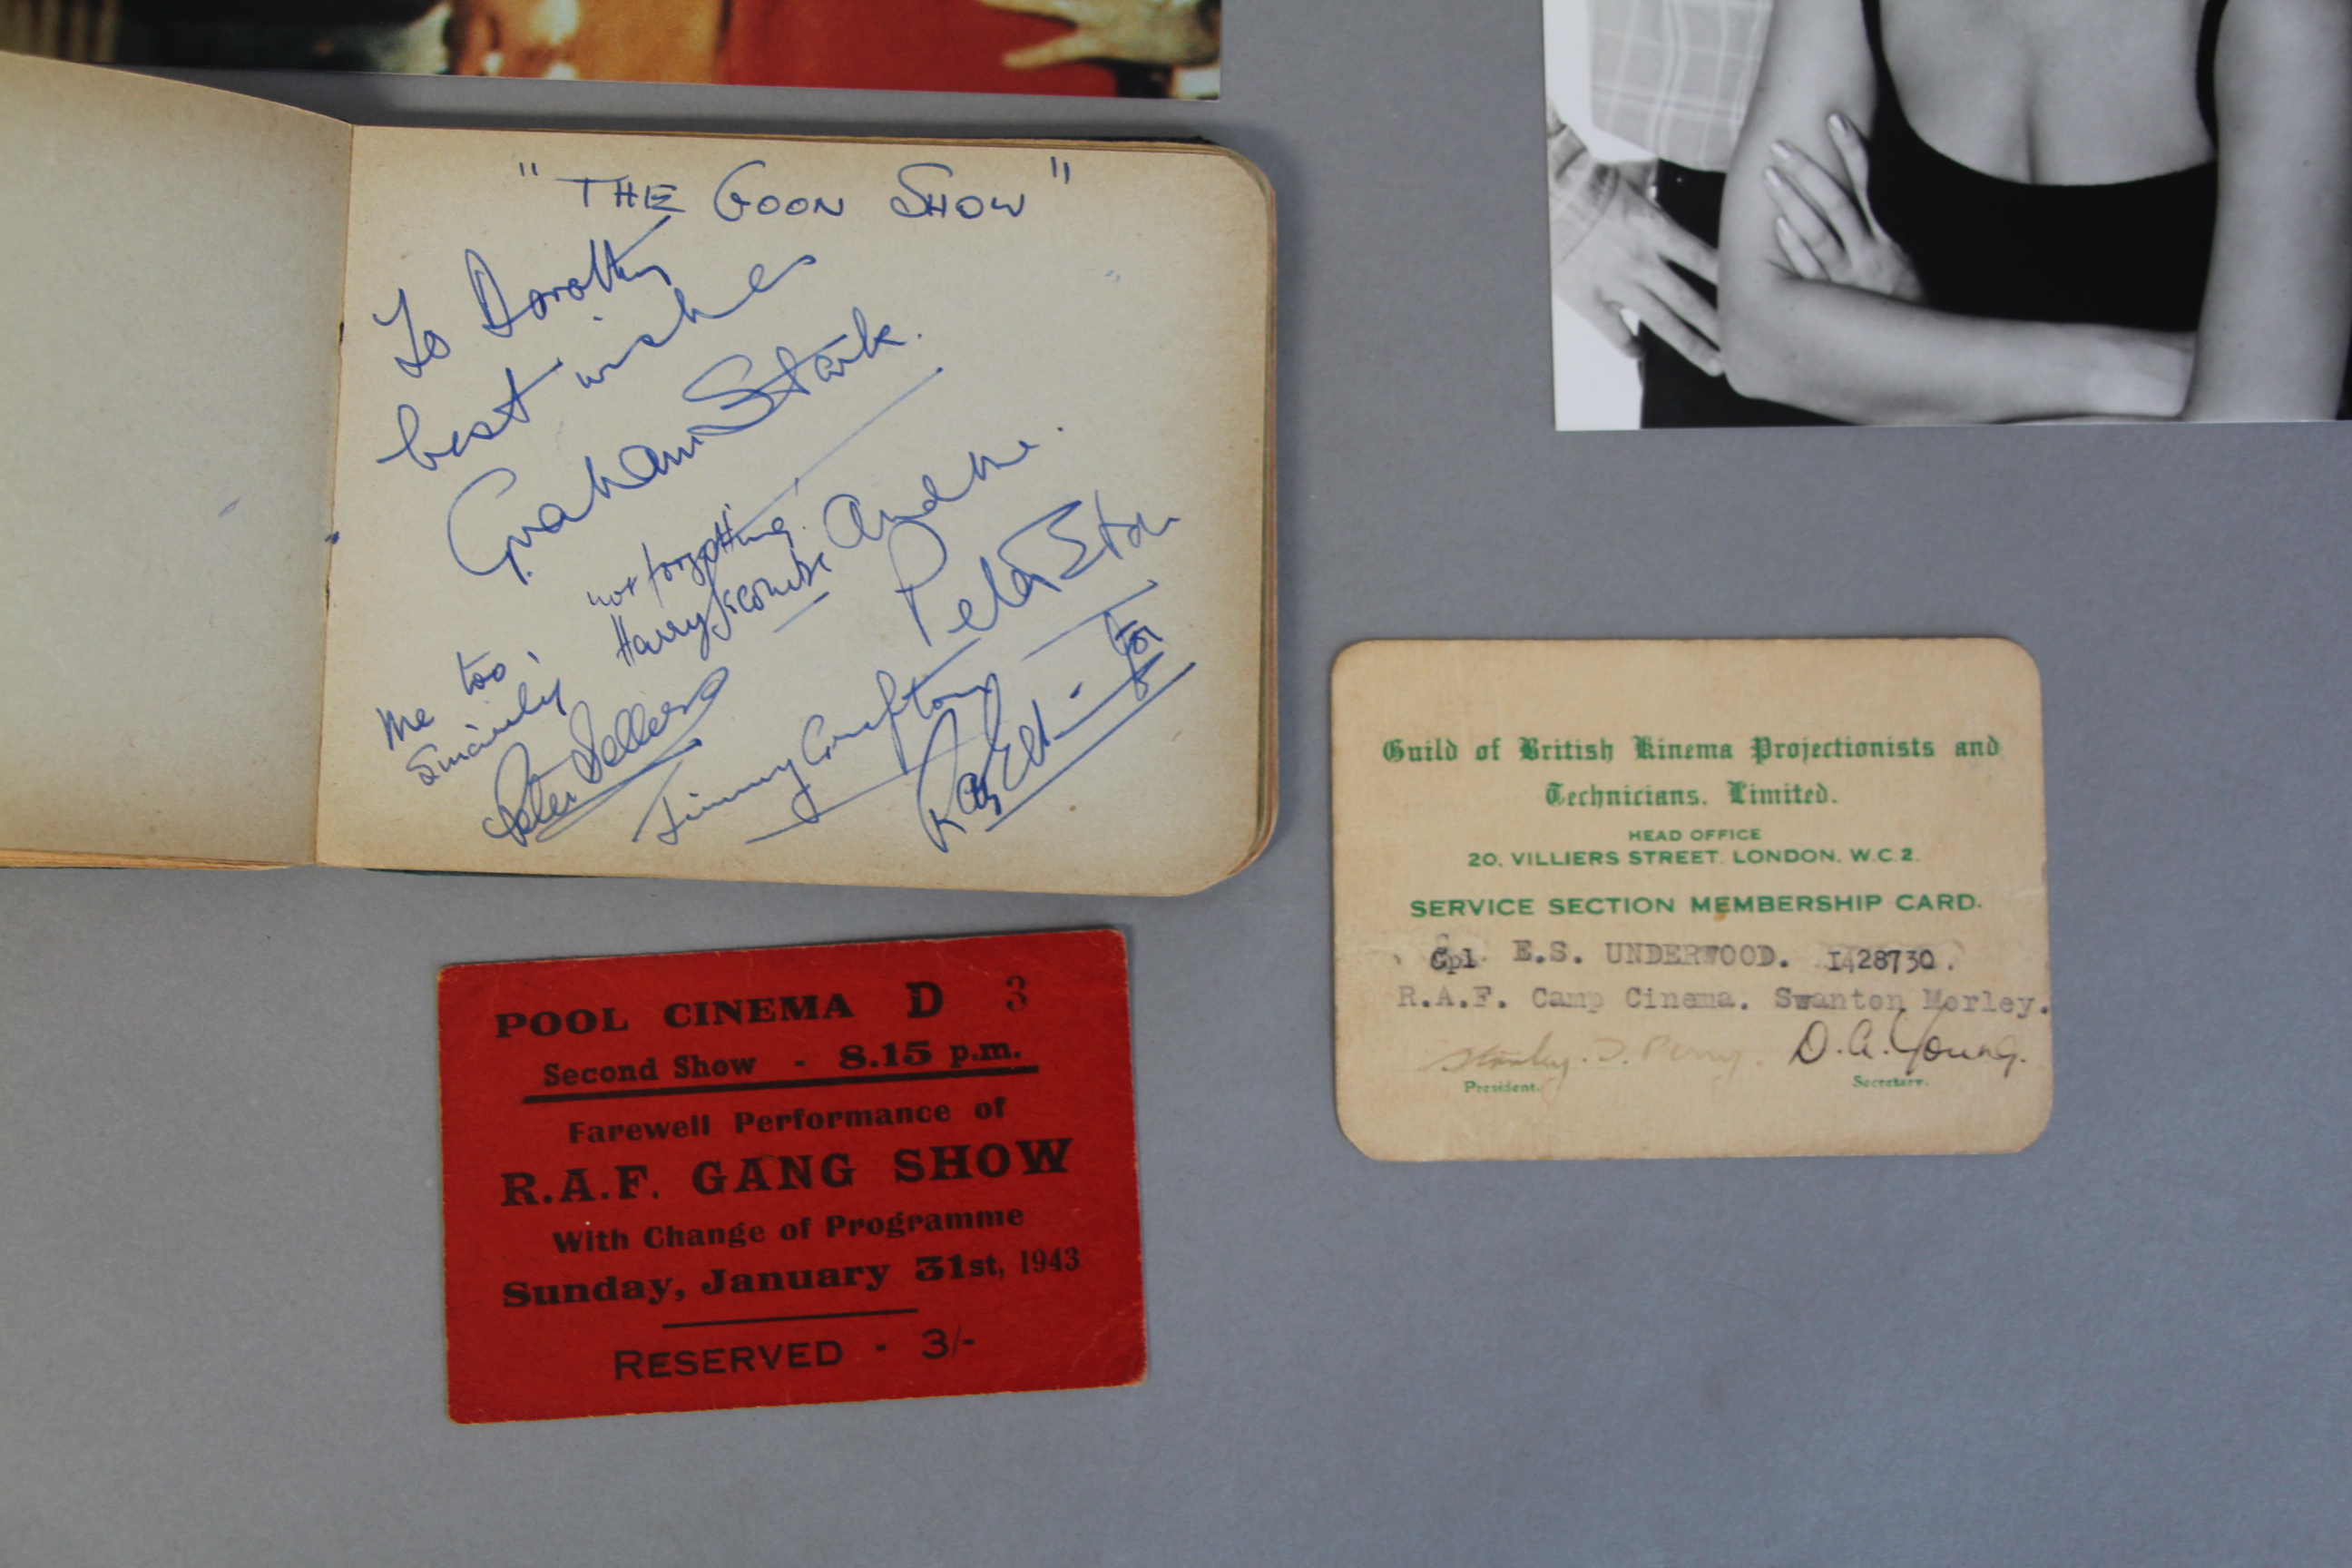 POOL CINEMA D 3
Second Show - 8.15 p.m.
Farewell Performance of
R.A.F. GANG SHOW
With Change of Programme
Sunday, January 31st, 1943
RESERVED - 3/-
" THE GOON SHOW "
To Dorothy
best wishes
Graham Stark.
not forgetting
Harry Secombe
me too
Sincerely
Peter Sellers
Jimmy Grafton
too
Guild of British Kinema Projectionists and
Technicians, Limited.
HEAD OFFICE
20, VILLIERS STREET, LONDON, W.C.2.
SERVICE SECTION MEMBERSHIP CARD.
Cpl. E.S. UNDERWOOD. 1428730.
R.A.F. Camp Cinema. Swanton Morley.
D.A. Young.
President. Secretary.